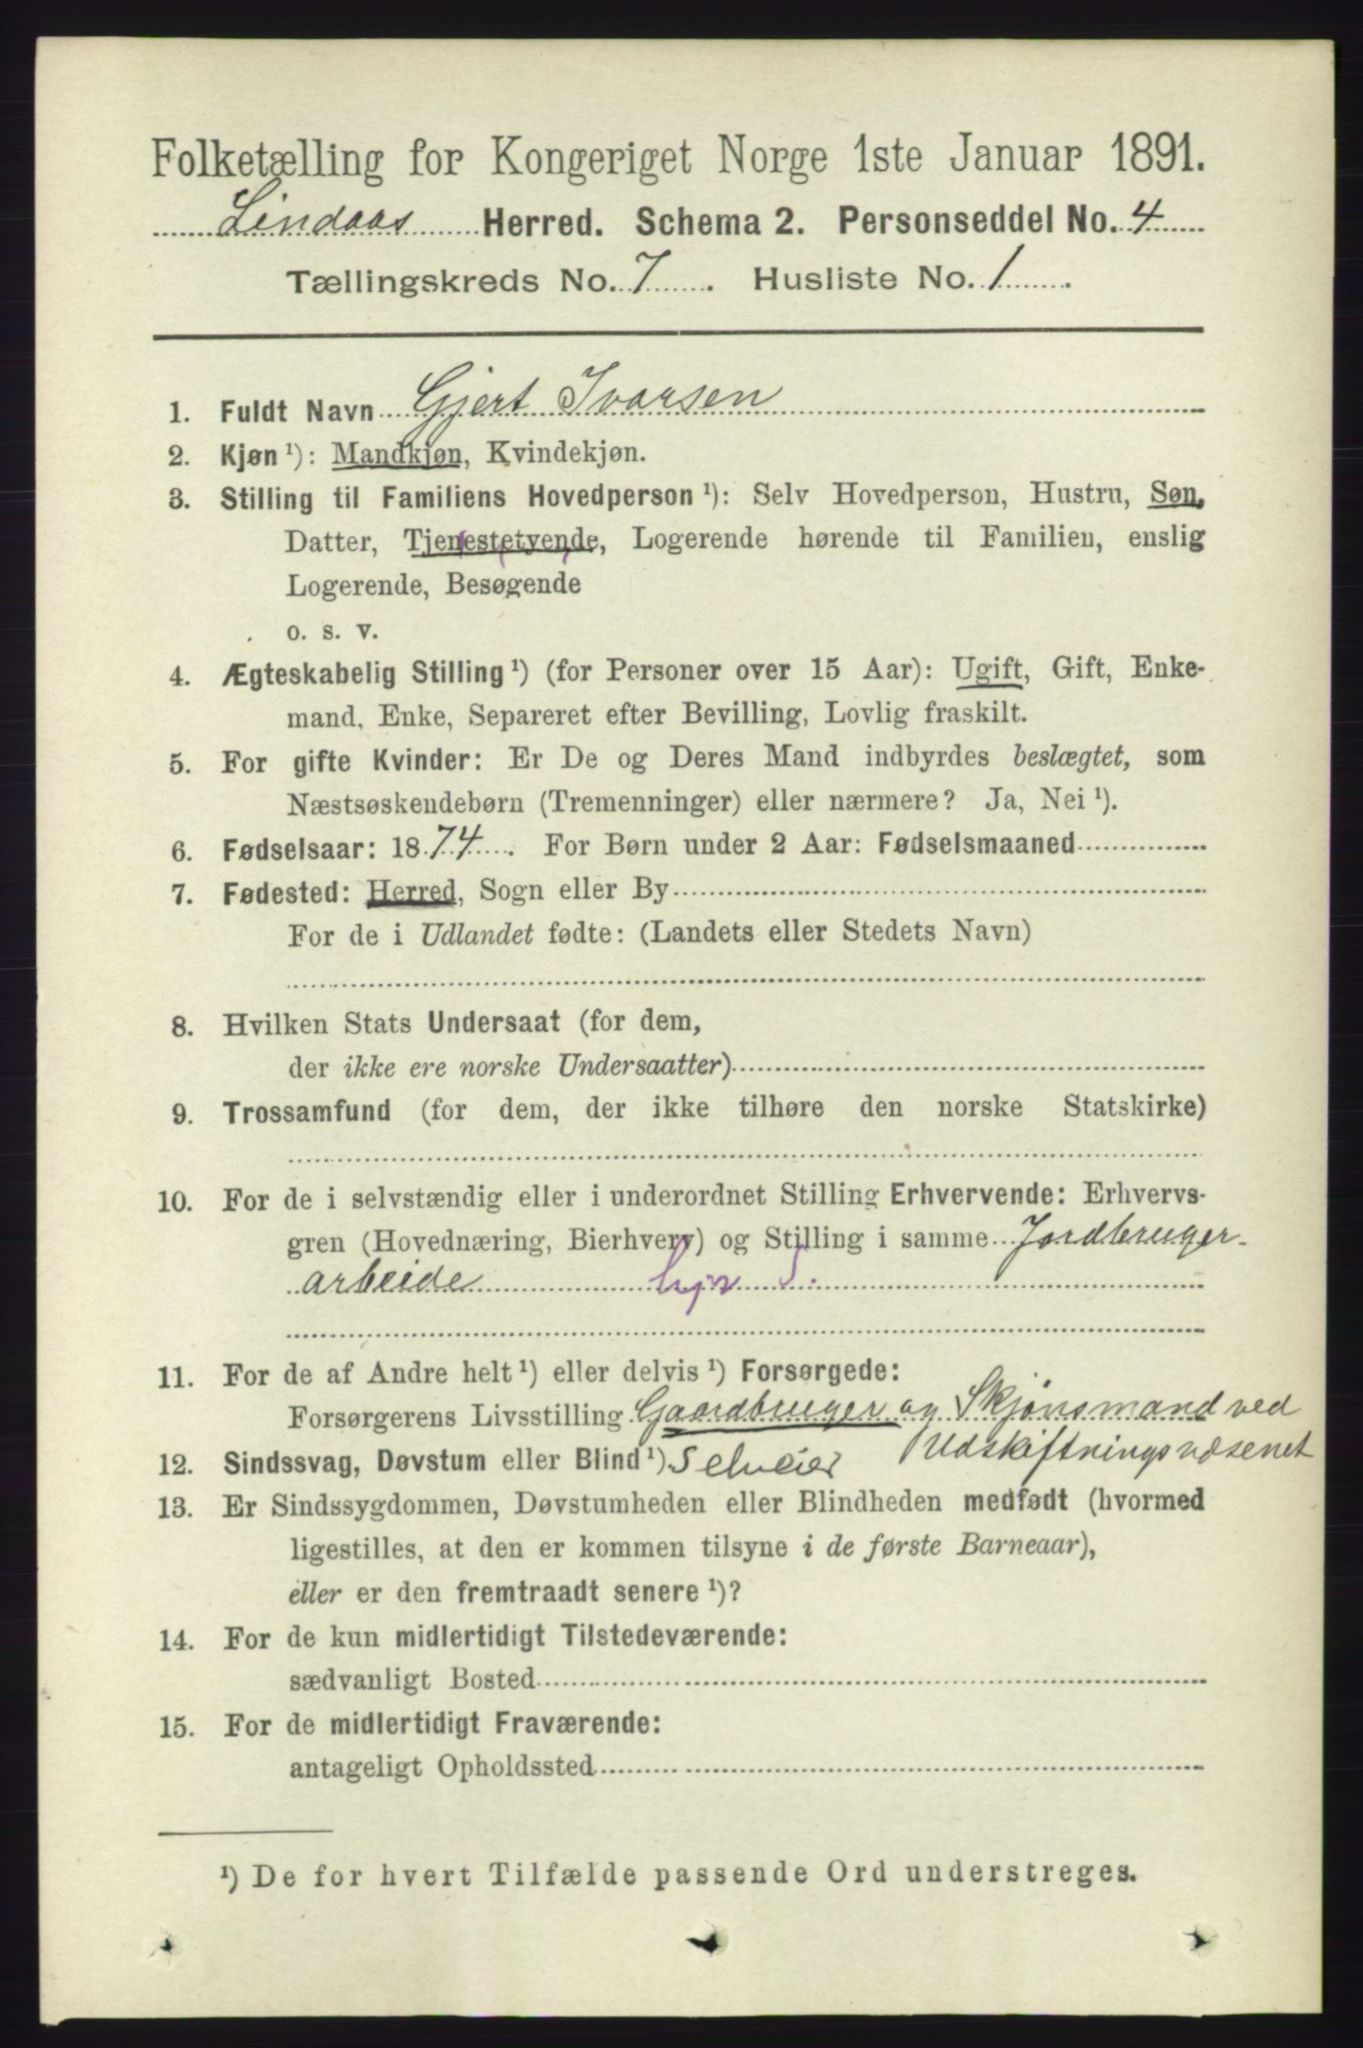 Folketælling for Kongeriget Norge 1ste Januar 1891.
Lindaas Herred. Schema 2. Personseddel No. 4
Tællingskreds No. 7. Husliste No. 1.
1. Fuldt Navn Gjert Ivarsen
2. Kjøn ¹): Mandkjøn, Kvindekjøn.
3. Stilling til Familiens Hovedperson ¹): Selv Hovedperson, Hustru, Søn,
Datter, Tjenestetyende, Logerende hørende til Familien, enslig
Logerende, Besøgende
o. s. v.
4. Ægteskabelig Stilling ¹) (for Personer over 15 Aar): Ugift, Gift, Enke-
mand, Enke, Separeret efter Bevilling, Lovlig fraskilt.
5. For gifte Kvinder: Er De og Deres Mand indbyrdes beslægtet, som
Næstsøskendebørn (Tremenninger) eller nærmere? Ja, Nei ¹).
6. Fødselsaar: 1874. For Børn under 2 Aar: Fødselsmaaned
7. Fødested: Herred, Sogn eller By
For de i Udlandet fødte: (Landets eller Stedets Navn)
8. Hvilken Stats Undersaat (for dem,
der ikke ere norske Undersaatter)
9. Trossamfund (for dem, der ikke tilhøre den norske Statskirke)
10. For de i selvstændig eller i underordnet Stilling Erhvervende: Erhvervs-
gren (Hovednæring, Bierhverv) og Stilling i samme Jordbruger-
arbeide
11. For de af Andre helt ¹) eller delvis ¹) Forsørgede:
Forsørgerens Livsstilling Gaardbruger og Skjønsmand ved
Udskiftningsvæsenet
12. Sindssvag, Døvstum eller Blind ¹) Selveier
13. Er Sindssygdommen, Døvstumheden eller Blindheden medfødt (hvormed
ligestilles, at den er kommen tilsyne i de første Barneaar),
eller er den fremtraadt senere ¹)?
14. For de kun midlertidigt Tilstedeværende:
sædvanligt Bosted
15. For de midlertidigt Fraværende:
antageligt Opholdssted
¹) De for hvert Tilfælde passende Ord understreges.